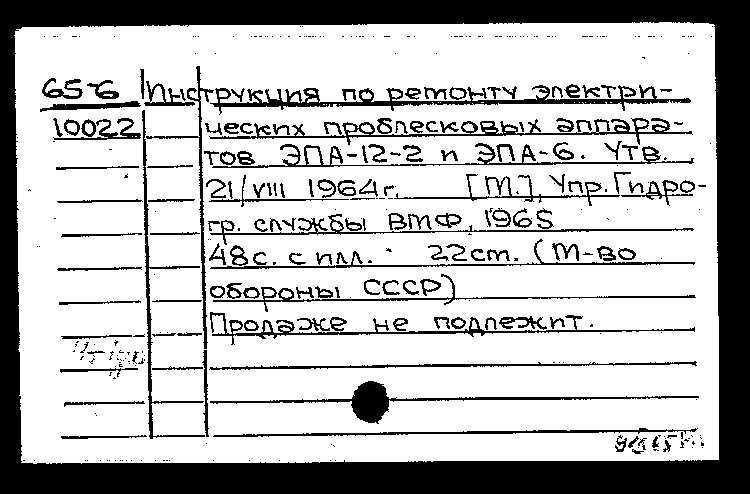 65-6 Инструкция по ремонту электри-
10022 ческих проблесковых аппара-
тов ЭПА-12-2 и ЭПА-6. Утв.
21/VIII 1964г. [М.], Упр. Гидро-
гр. службы ВМФ, 1965
48с. с илл. 22см. (М-во
обороны СССР)
Продаже не подлежит.